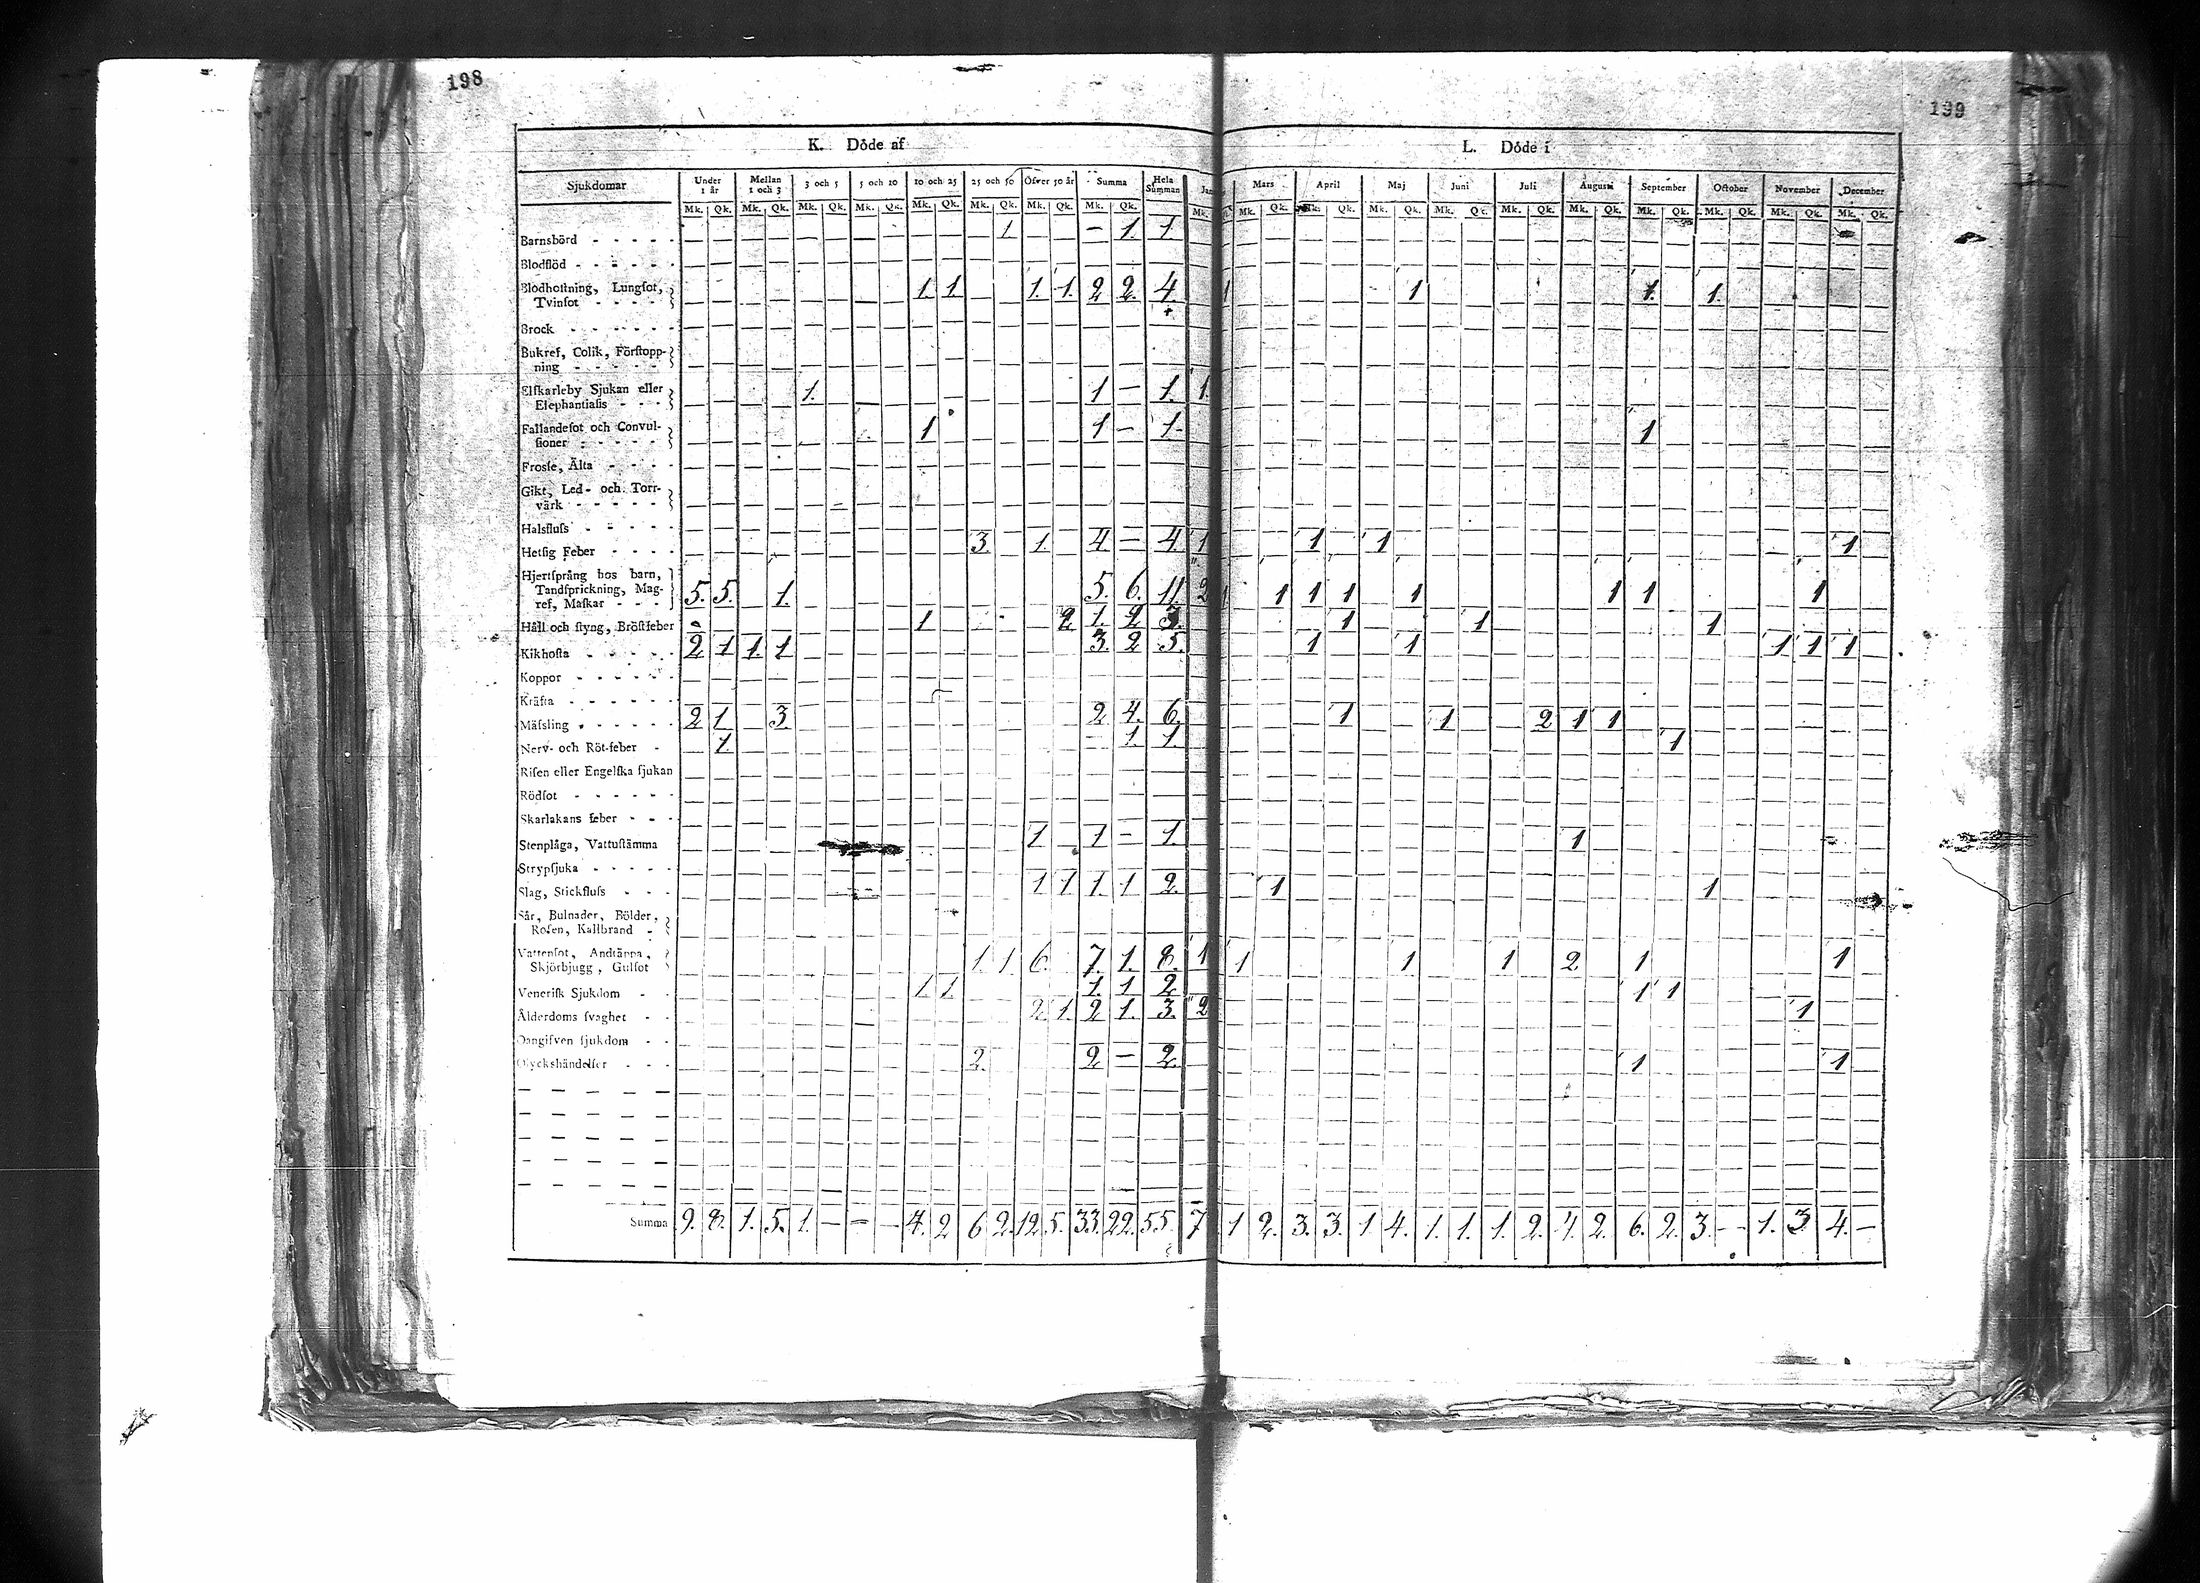 198
199
K. Döde af
L. Döde i
Sjukdomar Under 1 år Mellan 1 och 3 3 och 5 5 och 10 10 och 25 25 och 50 Öfver 50 år Summa Hela Summan Mars April Maj Juni Juli Augusti September October November December
Mk. Qk. Mk. Qk. Mk. Qk. Mk. Qk. Mk. Qk. Mk. Qk. Mk. Qk. Mk. Qk. Mk. Mk. Qk. Mk. Qk. Mk. Qk. Mk. Qk. Mk. Qk. Mk. Qk. Mk. Qk. Mk. Qk. Mk. Qk. Mk. Qk.
Barnsbörd 1 – 1. 1.
Blodflöd
Blodhostning, Lungsot,
Tvinsot 1. 1. 1. 1. 2 2. 4. 1 1 1. 1.
Brock
Bukref, Colik, Förstopp-
ning
Elskarleby Sjukan eller
Elephantiasis 1. 1 – 1. 1.
Fallandesot och Convul-
sioner 1 1 – 1. 1
Frosse, Älta
Gikt, Led- och Torr-
värk
Halsfluss
Hetsig Feber 3. 1. 4 – 4. 1 1 1 1
Hjertsprång hos barn,
Tandsprickning, Mag-
ref, Maskar 5. 5. 1. 5. 6. 11. 2 1 1 1 1 1 1 1 1
Håll och styng, Bröstfeber 1 2 1. 2 3. 1 1 1
Kikhosta 2 1 1. 1 3. 2 5. 1 1 1 1 1
Koppor
Kräfta
Mässling 2 1. 3. 2. 4. 6. 1 1 2 1 1
Nerv- och Röt-feber 1. 1. 1. 1
Risen eller Engelska sjukan
Rödsot
Skarlakans feber
Stenplåga, Vattustämma 1 1 – 1. 1
Strypsjuka
Slag, Stickfluss 1 1 1. 1 2. 1 1
Sår, Bulnader, Bölder,
Rosen, Kallbrand
Vattensot, Andtäppa,
Skjörbjugg, Gulsot 1. 1. 6. 7. 1. 8. 1 1 1 1 2 1 1
Venerisk Sjukdom 1. 1. 1. 1 2 1 1
Ålderdoms svaghet 2. 1. 2 1. 3. 2 1
Oangifven sjukdom
Olyckshändelser 2. 2 – 2. 1 1
Summa 9. 8. 1. 5. 1. – – – 4. 2 6 2. 12. 5. 33. 22. 55. 7 1 2. 3. 3. 1 4. 1. 1. 1. 2. 4. 2. 6. 2. 3. – 1. 3 4. –